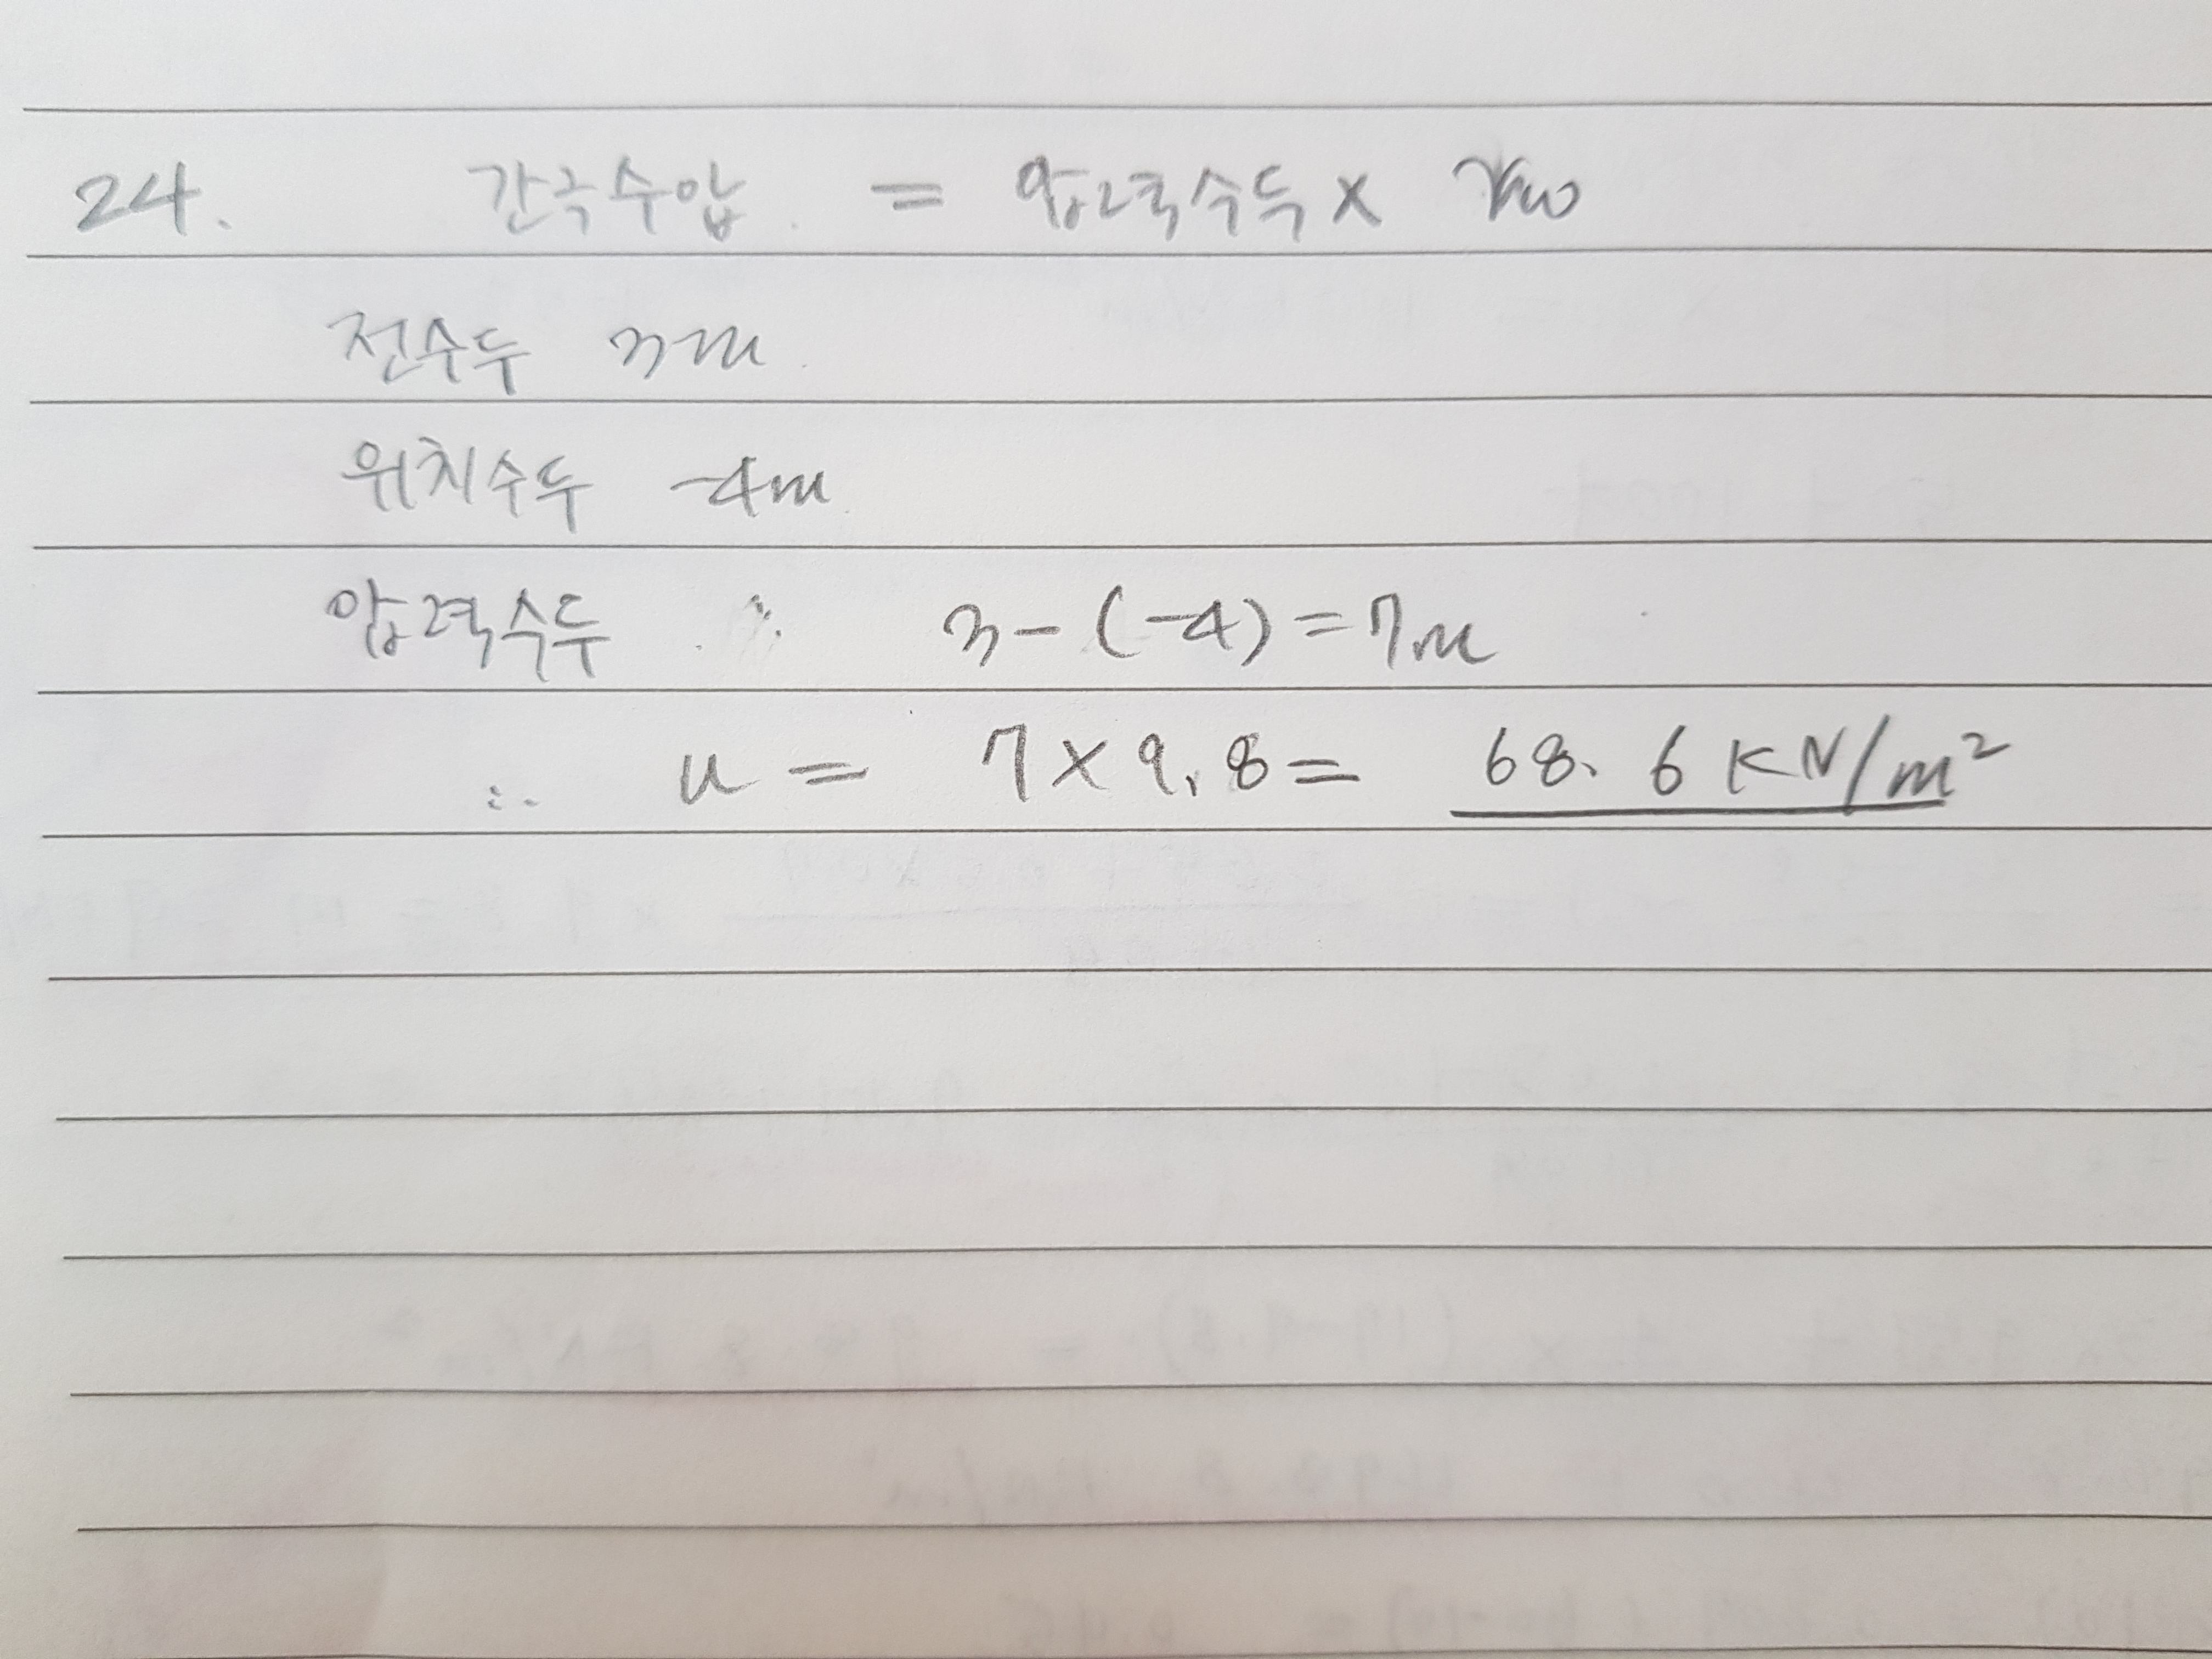 24. 간극수압 = 압력수두 × γw
전수두 3m
위치수두 -4m
압력수두 ∴ 3-(-4)=7m
∴ u = 7×9.8= 68.6 KN/m²